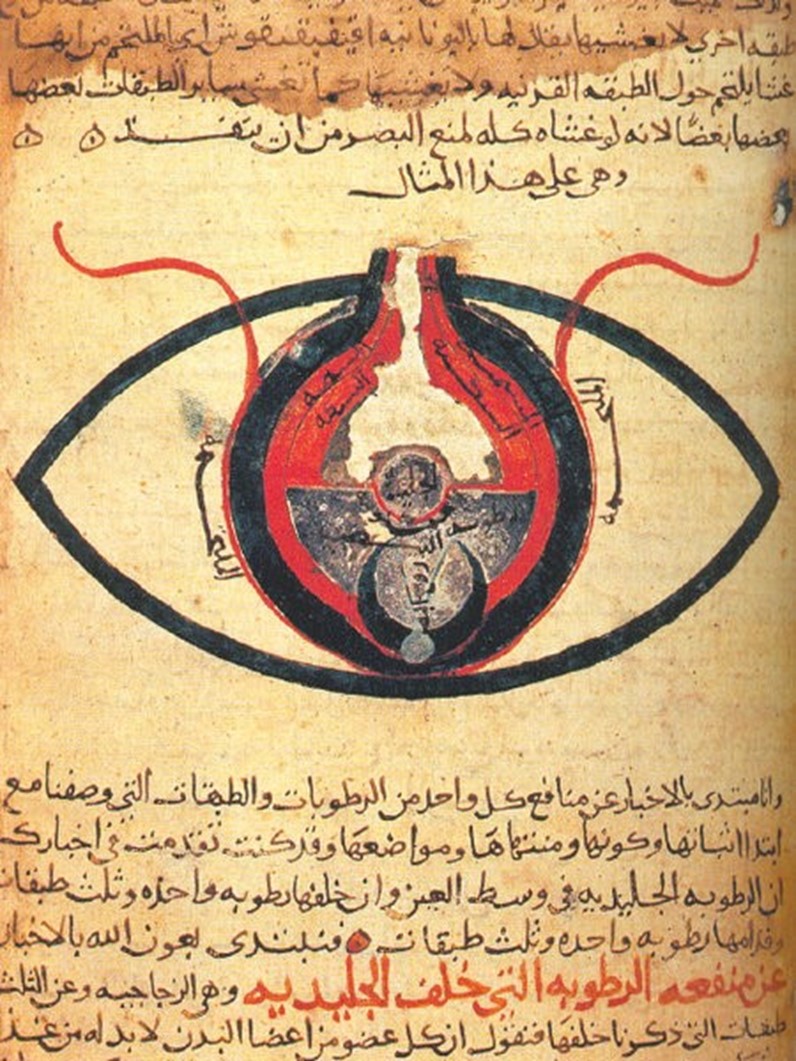 طبقه اخرى لا تغشيها يقال لها باليونانيه افيفيقيقوش اي الملتحم من ايها
غشا يلتحم حول الطبقه القرنيه ولا يغشيها كما تغشى ساير الطبقات بعضها
بعضها بعضًا لانه لو غشاه كله لمنع البصر من ان ينفذ
وهي على هذا المثال
الشبكيه
الجليديه
الملتحمه
الملتحمه
وانا مبتدى بالاخبار عن منافع كل واحد من الرطوبات والطبقات التي وصفنا مع
ابتدا اثباتها وكونها ومنتهاها ومواضعها وقد كنت تقدمت في اخبارك
ان الرطوبه الجليديه في وسط العين وان خلفها رطوبه واحده وثلث طبقات
وقدامها رطوبه واحده وثلث طبقات فنبتدى بعون الله بالاخبار
عن منفعه الرطوبه التي خلف الجليديه وهي الزجاجيه وعن الثلث
طبقات التي ذكرنا خلفها فنقول ان كل عضو من اعضا البدن لا بد له من غذا